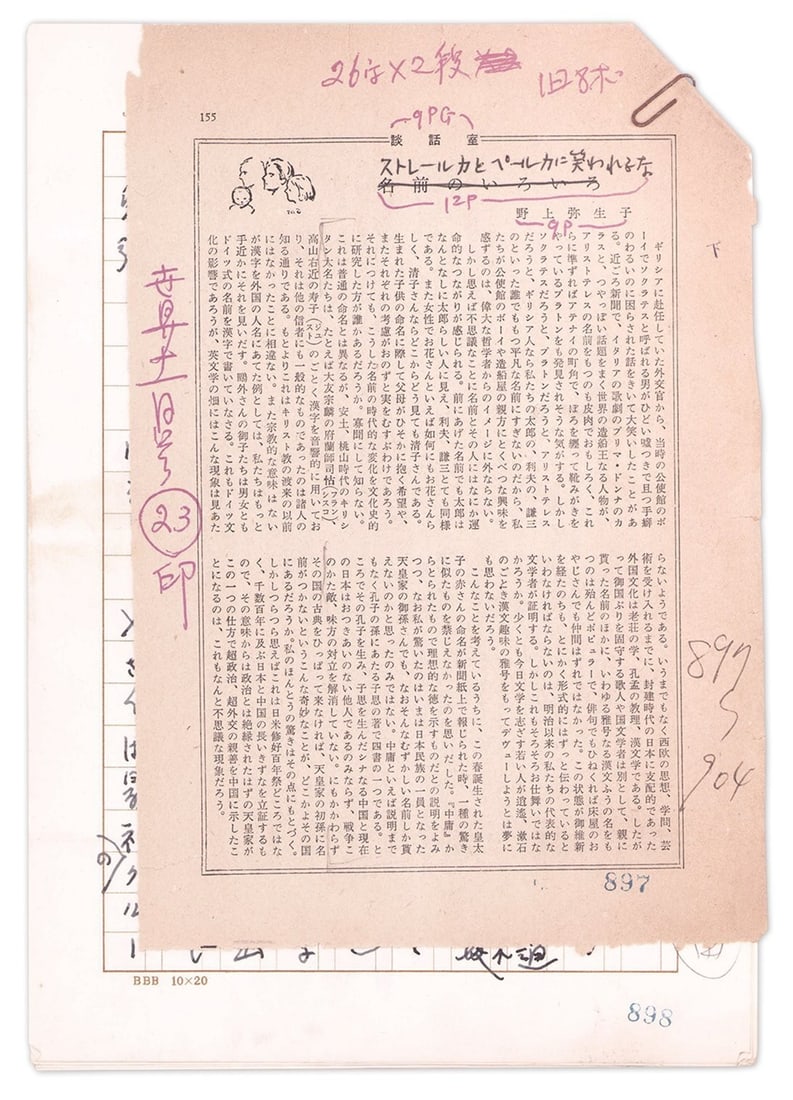 26字×2段
旧8ポ
155
9PG
談話室
ストレールカとベールカに笑われるな
名前のいろいろ
12P
野上弥生子
9P
ギリシアに赴任していた外交官から、当時の公使館のボ
ーイでソクラテスと呼ばれる男がひどい嘘つきで且つ手癖
のわるいのに困らされた話をきいて大笑いしたことがあ
る。近ごろ新聞で、イタリアの歌劇のプリマ・ドンナのカ
ラスと、つやっぽい話題をまく世界の造船王なる人物が、
アリストテレスの名前をもつのも皮肉でおもしろく、これ
らに準ずればアテナイの町角で、ぼろを纒って靴みがきを
やっているプラトンをも発見されそうな気がする。しかし
ソクラテスだろうと、プラトンだろうと、アリストテレス
だろうと、ギリシア人なら私たちの太郎の、利夫の、謙三
のといった誰でももつ平凡な名前にすぎないのだから、私
たちが公使館のボーイや造船屋の親方にとくべつな興味を
感ずるのは、偉大な哲学者からのイメージに外ならない。
しかし思えば不思議なことに名前とその人にはなにか運
命的なつながりが感じられる。前にあげた名前でも太郎は
なんとなしに太郎らしい人に見え、利夫、謙三とても同様
である。また女性でお花さんといえば如何にもお花さんら
しく、清子さんならどこからどう見ても清子さんである。
生まれた子供の命名に際して父母がひそかに抱く希望や、
またそれぞれの考慮がおのずと実をむすぶわけであろう。
それにつけても、こうした名前の時代的な変化を文化史的
に研究した方が誰かあるだろうか。寡聞にして知らない。
これは普通の命名とは異なるが、安土、桃山時代のキリシ
タン大名たちは、たとえば大友宗麟の府蘭師司怙(フランシスコ)、
高山右近の寿子(ジュスト)のごとく漢字を音響的に用いてお
り、それは他の信者にも一般的なものであったのは諸人の
知る通りである。もとよりこれはキリスト教の渡来の以前
にはなかったことに相違ない。また宗教的な意味はない
が漢字を外国の人名にあてた例としては、私たちはもっと
手近かにそれを見いだす。鷗外さんの御子たちは男女とも
ドイツ式の名前を漢字で書いていなさる。これもドイツ文
化の影響であろうが、英文学の畑にはこんな現象は見あた
らないようである。いうまでもなく西欧の思想、学問、芸
術を受け入れるまでに、封建時代の日本に支配的であった
外国文化は老荘の学、孔孟の教理、漢文学である。したが
って御国ぶりを固守する歌人や国文学者は別として、親に
貰った名前のほかに、いわゆる雅号なる漢文ふうの名をも
つのは殆んどポピュラーで、俳句でもひねくれば床屋のお
やじさんでも仲間はずれではなかった。この状態が御維新
を経たのちも、とにかく形式的にはずっと伝わっていると
いわなければならないのは、明治以来の私たちの代表的な
文学者が証明する。しかしこれもそろそろお仕舞いではな
かろうか。少くとも今日文学を志ざす若い人が逍遙、漱石
のごとき漢文趣味の雅号をもってデヴューしようとは夢に
も思わないだろう。
こんなことを考えているうちに、この春誕生された皇太
子の赤さんの命名が新聞紙上で報じられた時、一種の驚き
に似たものを禁じえなかったのを思いだした。『中庸』か
らとられたもので理想的な徳を示すものだとの説明をよみ
つつ、なお私が驚いたのはいまは日本民族の一員となった
天皇家の御孫さんでも、なおそんなむずかしい名前しか貰
えないのかと思ったのみではない。中庸といえば説明まで
もなく孔子の孫にあたる子思の著で四書の一つである。と
ころでその孔子を生み、子思を生んだシナなる中国と現在
の日本はおつきあいのない他人であるのみならず、戦争こ
のかた敵、味方の対立を解消していない。にもかかわらず
その国の古典をひっぱって来なければ、天皇家の初孫に名
前がつかないというこんな奇妙なことが、どこかよその国
にあるだろうか。私のほんとうの驚きはその点にもとづく。
しかしつらつら思えばこれは日米修好百年祭どころではな
く、千数百年に及ぶ日本と中国の長いきずなを立証するも
ので、その意味からは政治とは絶縁されたはずの天皇家が
この一つの仕方で超政治、超外交の親善を中国に示したこ
とになるのは、これもなんと不思議な現象だろう。
23
印
897
904
897
BBB 10×20
898